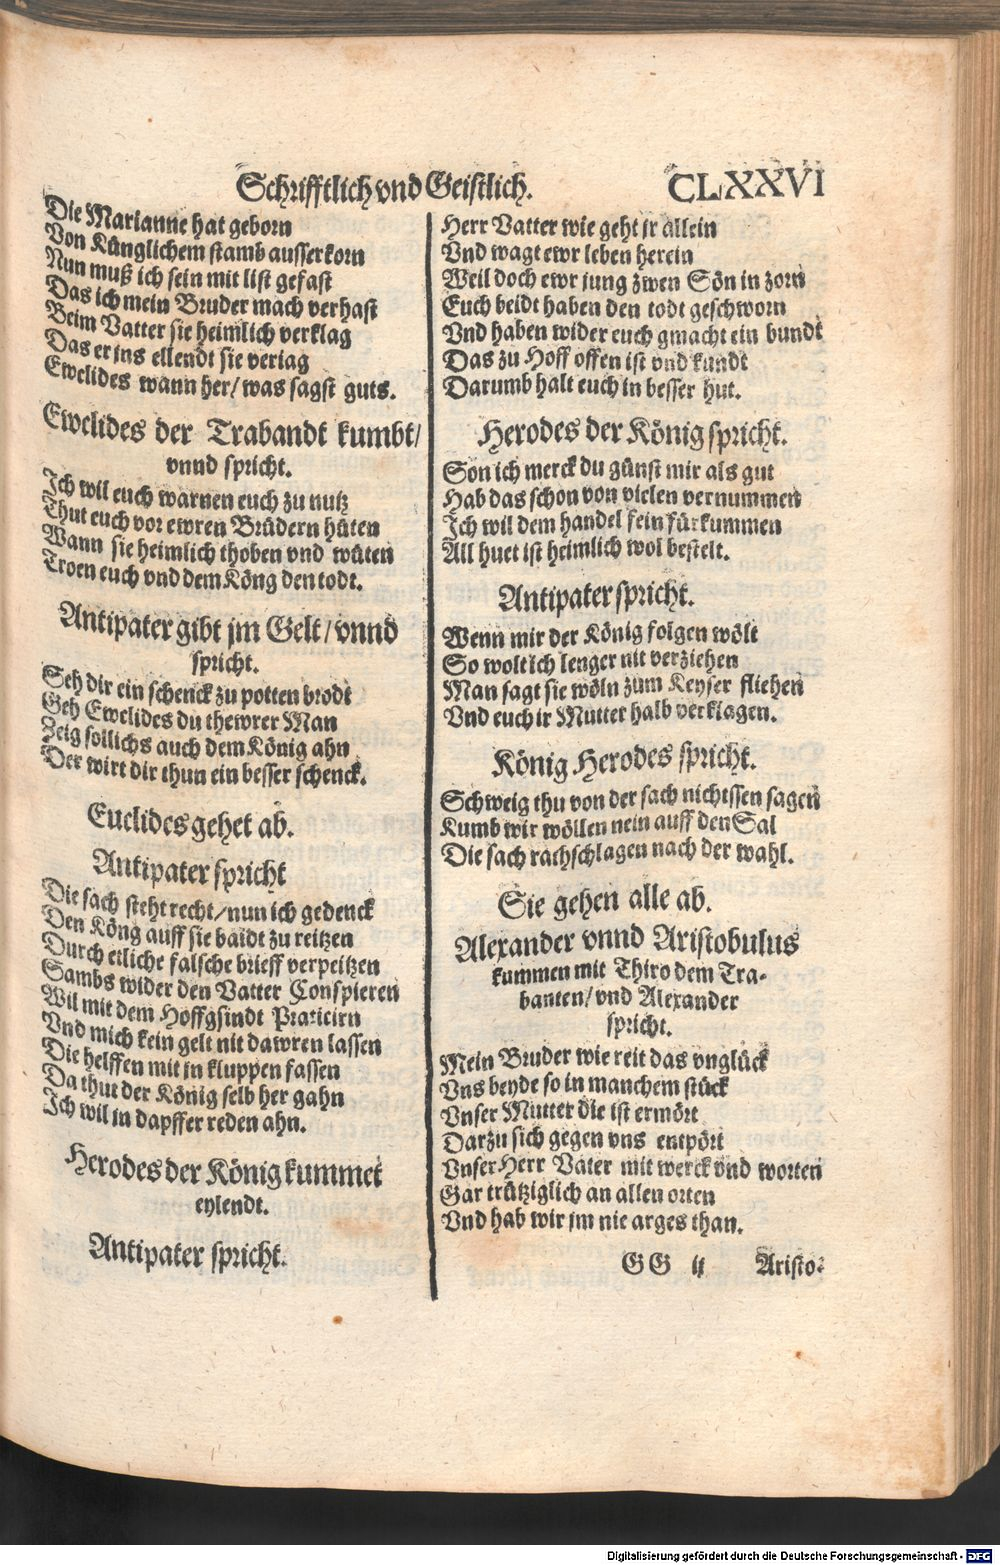 Schrifftlich vnd Geistlich. CLXXVI
Die Marianne hat geborn
Von Künglichem stamb ausserkorn
Nun muß ich sein mit list gefast
Das ich mein Bruder mach verhast
Beim Vatter sie heimlich verklag
Das er ins ellendt sie veriag
Ewclides wann her/ was sagst guts.
Ewclides der Trabandt kumbt/
vnnd spricht.
Ich wil euch warnen euch zu nutz
Thut euch vor ewren Brüdern hüten
Wann sie heimlich thoben vnd wüten
Troen euch vnd dem Köng den todt.
Antipater gibt jm Gelt/ vnnd
spricht.
Seh dir ein schenck zu potten brodt
Geh Ewclides du thewrer Man
Zeig sollichs auch dem König ahn
Der wirt dir thun ein besser schenck.
Euclides gehet ab.
Antipater spricht
Die sach steht recht/ nun ich gedenck
Den Köng auff sie baidt zu reitzen
Durch etliche falsche brieff verpeitzen
Sambs wider den Vatter Conspieren
Wil mit dem Hoffgsindt Praticirn
Vnd mich kein gelt nit dawren lassen
Die helffen mit in kluppen fassen
Da thut der König selb her gahn
Ich wil in dapffer reden ahn.
Herodes der König kummet
eylendt.
Antipater spricht.
Herr Vatter wie geht jr allein
Vnd wagt ewr leben herein
Weil doch ewr jung zwen Sön in zorn
Euch beidt haben den todt geschworn
Vnd haben wider euch gmacht ein bundt
Das zu Hoff offen ist vnd kundt
Darumb halt euch in besser hut.
Herodes der König spricht.
Son ich merck du günst mir als gut
Hab das schon von vielen vernummen
Ich wil dem handel fein fürkummen
All huet ist heimlich wol bestelt.
Antipater spricht.
Wenn mir der König folgen wölt
So wolt ich lenger nit verziehen
Man sagt sie wöln zum Keyser fliehen
Vnd euch ir Mutter halb verklagen.
König Herodes spricht.
Schweig thu von der sach nichtssen sagen
Kumb wir wöllen nein auff den Sal
Die sach rathschlagen nach der wahl.
Sie gehen alle ab.
Alexander vnnd Aristobulus
kummen mit Thiro dem Tra-
banten/ vnd Alexander
spricht.
Mein Bruder wie reit das vnglück
Vns beyde so in manchem stück
Vnser Mutter die ist ermört
Darzu sich gegen vns entpört
Vnser Herr Vater mit werck vnd worten
Gar trützliglich an allen orten
Vnd hab wir jm nie arges than.
GG ij Aristo-
Digitalisierung gefördert durch die Deutsche Forschungsgemeinschaft - DFG